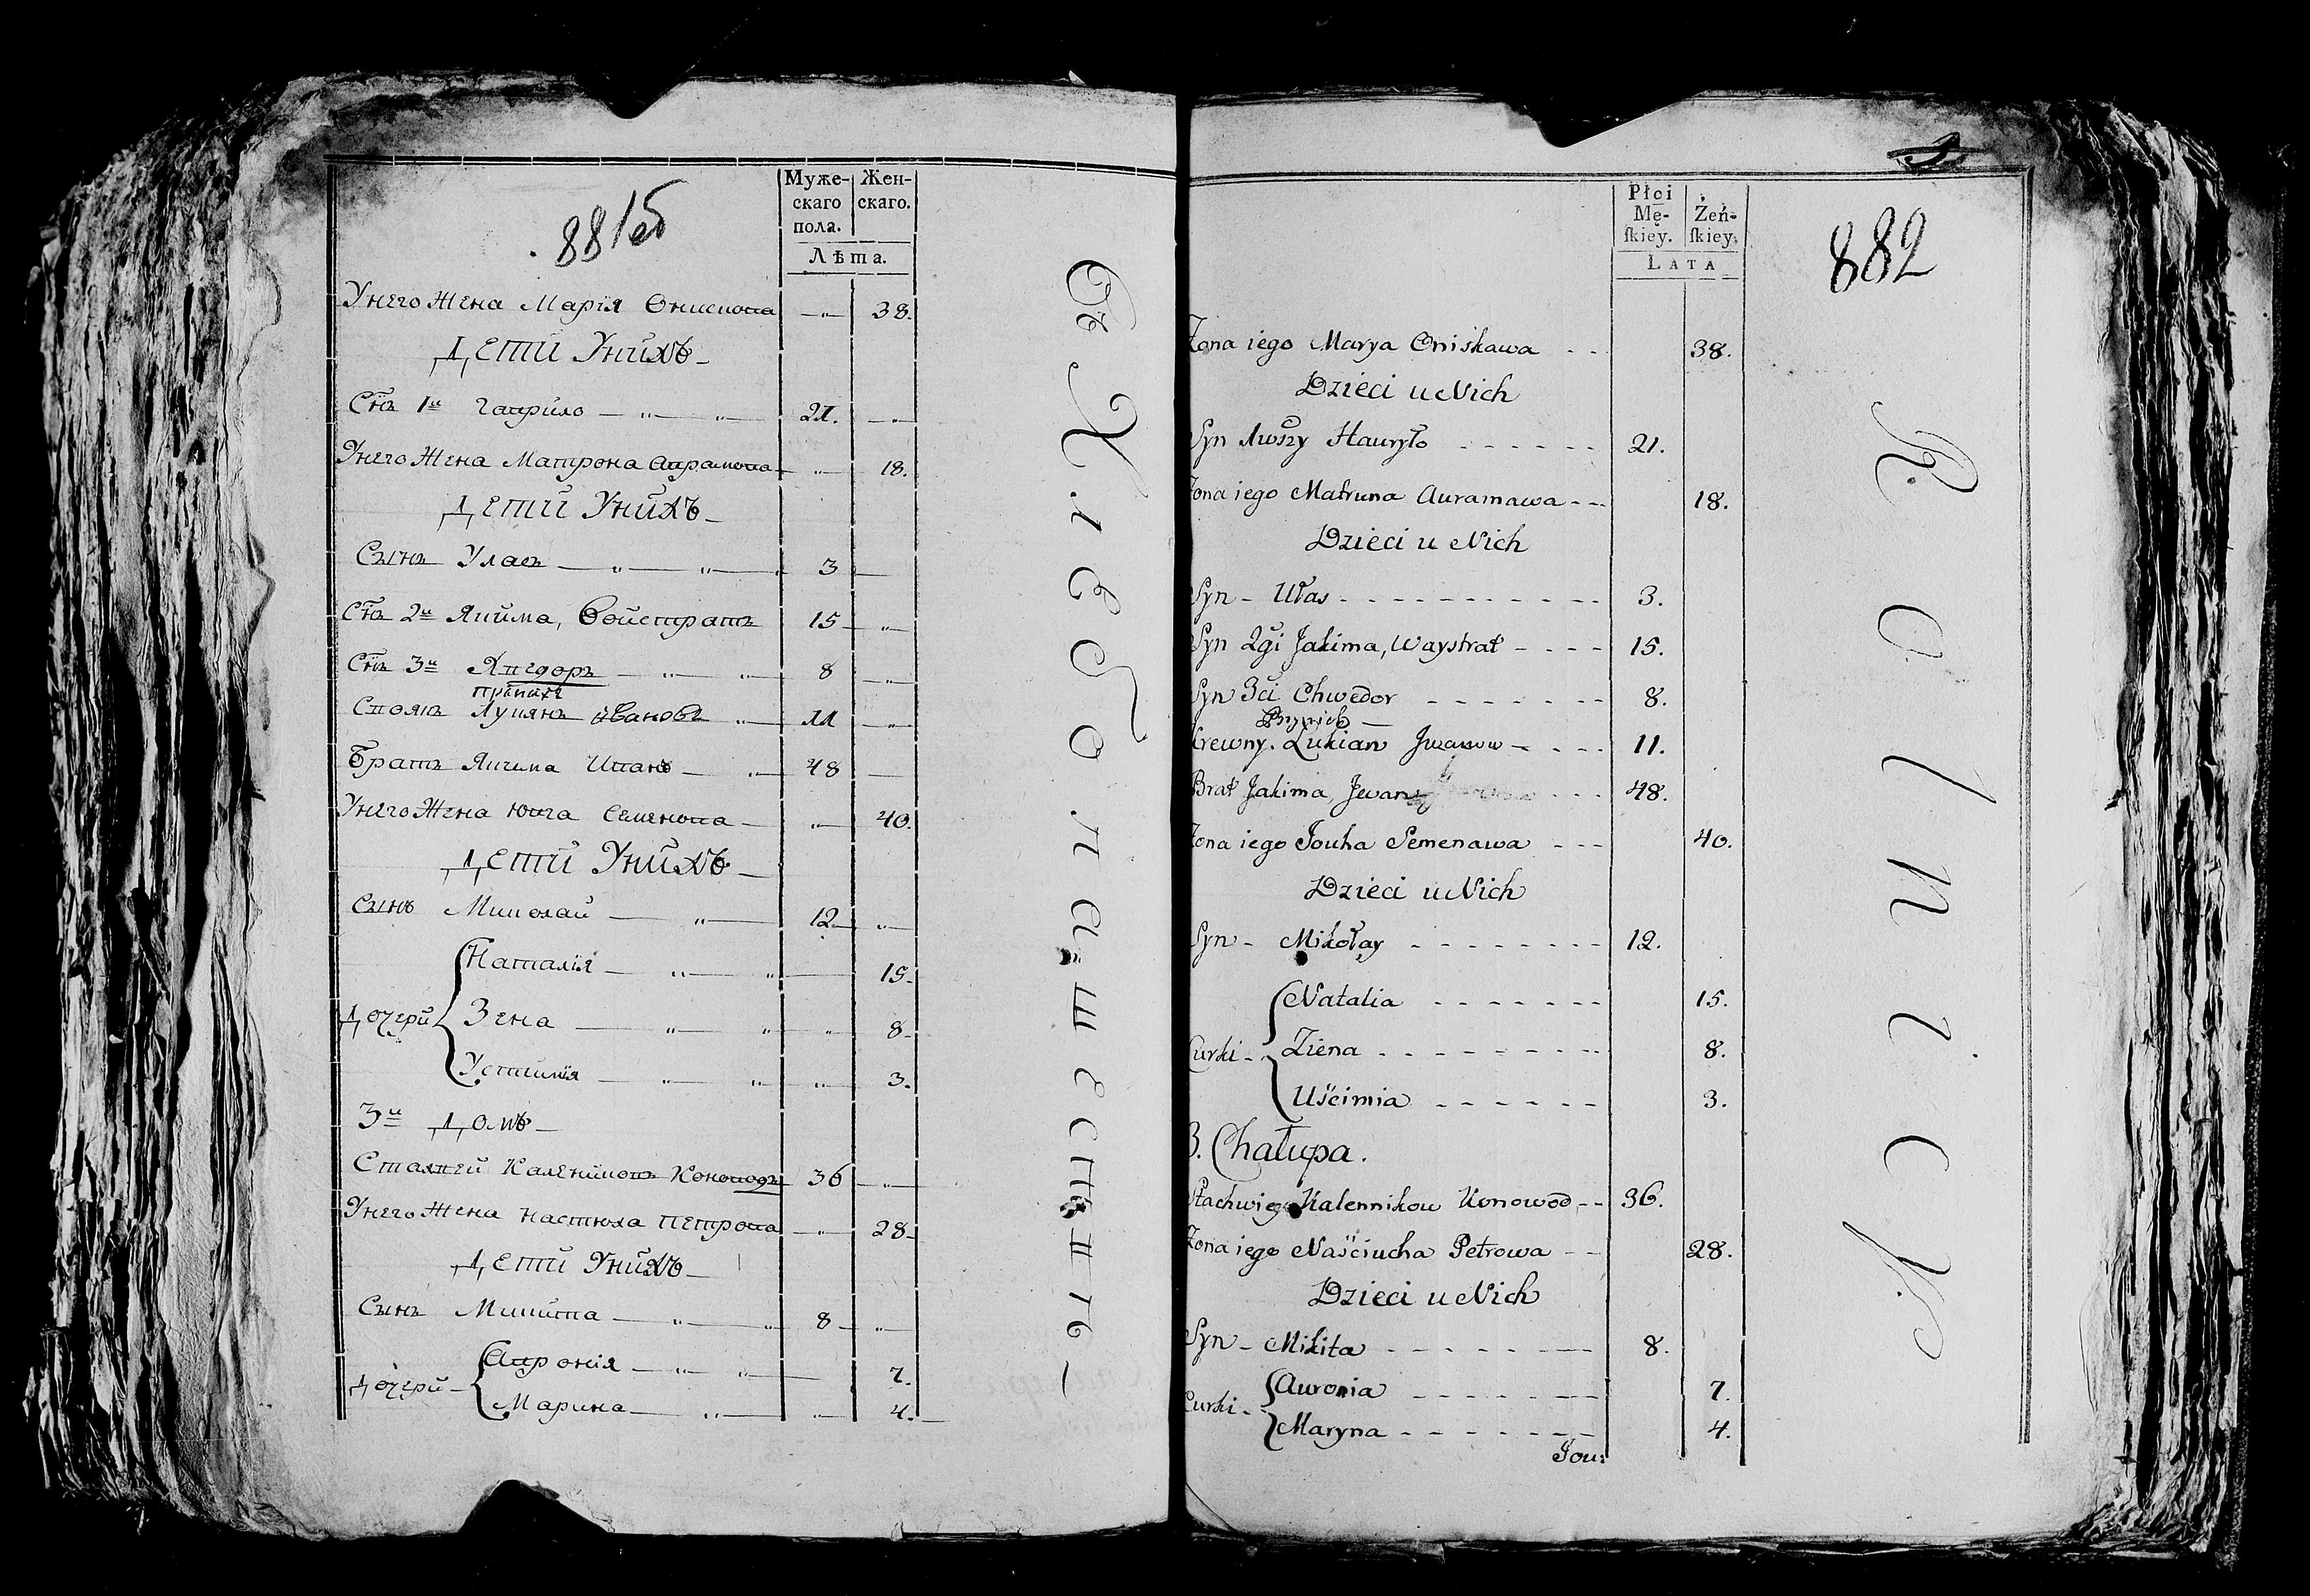 881об
Муже-
скаго
пола.
Жен-
скаго.
Лѣта.
У него Жена Марія Ониськова — " — 38.
Дети У нихъ —
Снъ 1й Гаврило — " — " — 21. — " —
У него Жена Матрона Аврамова — " — 18.
Дети У нихъ —
Сынъ Уласъ — " — " — 3 —
Снъ 2й Якима, Войстратъ 15 — " —
Снъ 3й Хведоръ — " — " — 8 — " —
приныхъ
Своякъ Лукянъ Ивановъ " — 11 — " —
Братъ Якима Иванъ — " — 48 —
У него Жена Ювга Семенова — " — 40.
Дети У нихъ —
Сынъ Миколай — " — 12 — " —
Наталія — " — " — 15.
Дочери Зена — " — " — " — 8 —
Устимія — " — " — " — 3.
3й Домъ —
Стахвей Каленниковъ Коновод 36 — " —
У него Жена Настюха Петрова — " — 28 —
Дети У нихъ —
Сынъ Микита — " — " — 8 — " —
Авронія — " — " — 7.
Дочери —
Марина — " — " — 4. —
882
Płci
Mę-
ſkiey.
Żeń-
ſkiey.
LATA
Żona iego Marya Oniskawa - - 38.
Dzieci u Nich
Syn 1wszy Hauryło - - - - - - 21.
Żona iego Matruna Auramawa - - - 18.
Dzieci u Nich
Syn - Ułas - - - - - - - - - - - 3.
Syn 2gi Jakima, Waystrat - - - - 15.
Syn 3ci Chwedor - - - - - - - 8.
Przynich —
Krewny. Łukian Jwanow - - - - 11.
Brat Jakima, Jwan - - - 48.
Żona iego Jouha Semenawa - - - 40.
Dzieci u Nich
Syn - Mikołay - - - - - - - - 12.
Natalia - - - - - - - 15.
Curki - Ziena - - - - - - - - - 8.
Uścimia - - - - - - 3.
3. Chałupa.
Stachwiey Kalennikow Konowod - - 36.
Żona iego Naściucha Petrowa - - 28.
Dzieci u Nich
Syn - Mikita - - - - - - - - 8.
Auronia - - - - - - - 7.
Curki -
Maryna - - - - - - - 4.
Jou:
R o l n i c y